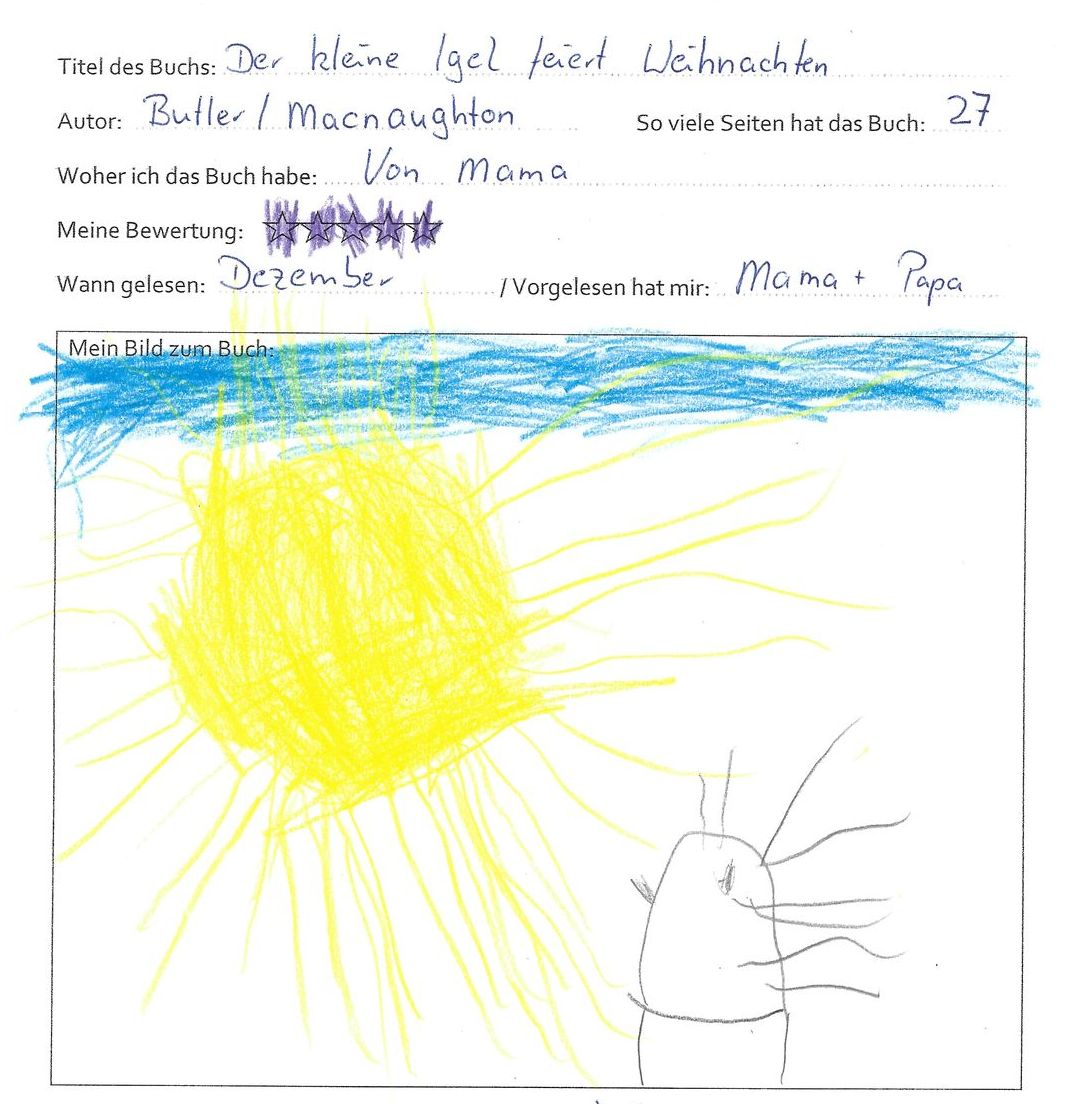 Titel des Buchs: Der kleine Igel feiert Weihnachten
Autor: Butler / Macnaughton So viele Seiten hat das Buch: 27
Woher ich das Buch habe: Von Mama
Meine Bewertung:
Wann gelesen: Dezember / Vorgelesen hat mir: Mama + Papa
Mein Bild zum Buch: